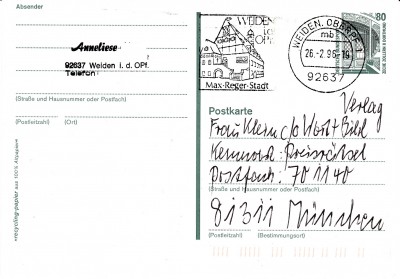 Absender
Anneliese
92637 Weiden i. d. OPf.
Telefon
(Straße und Hausnummer oder Postfach)
(Postleitzahl) (Ort)
recycling-papier aus 100% Altpapier
WEIDEN
i.d.
OPf.
Max-Reger-Stadt
WEIDEN, OBERPF 1
mb
26.-2.96.-19
92637
80
DEUTSCHE BUNDESPOST
Postkarte
Verlag
Frau Klein c/o Wort+Bild
Kennword: Preisrätsel
Postfach: 701140
(Straße und Hausnummer oder Postfach)
81311 München
(Postleitzahl) (Bestimmungsort)